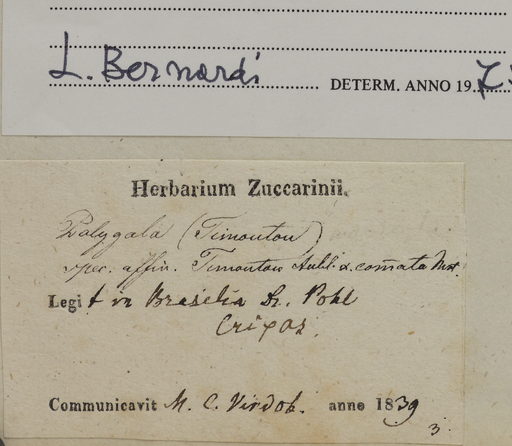 L. Bernardi DETERM. ANNO 19
Herbarium Zuccarinii.
Polygala (Timoutou)
spec. affin. Timoutou Aubl. & comata Mrt.
Legit in Brasilia Dr. Pohl
Crixas.
Communicavit M. C. Vindob. anno 1839
3.